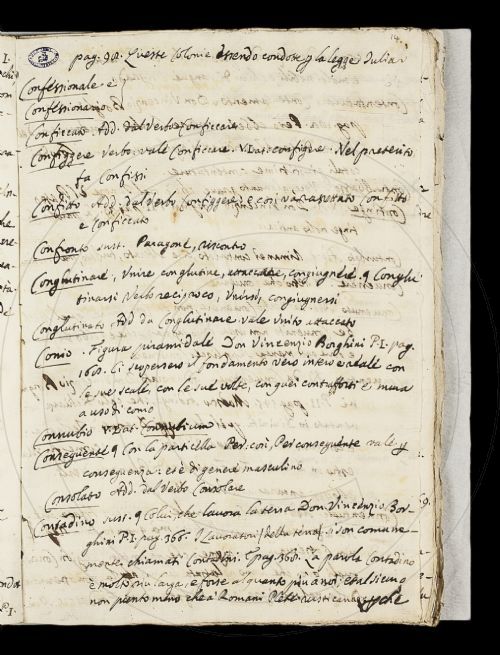 pag. 98. Queste Colonie essendo condote p la legge Julia
Confessionale e
Confessionario
Conficcato. Add. dal Verbo Conficcare
Configgere Verbo. vale Conficcare. V. Dat: configere. Nel preterito
fa Confissi
Confitto Add. del Verbo Configgere; e cosi
e Conficcato
Confronto sust. Paragone, riscontro
Conglutinare, Unire con glutine, attaccare, congiugnere. q Conglu
tinarsi Verbo reciproco, Unirsi, congiugnersi
Conglutinato, Add da Conglutinare vale Unito attaccato
Conio. Figura piramidale Don Vincenzio Borghini P.I. pag.
160. Ci scopersero il fondamento vero intero
le sue scale, con le sue volte, con quei contrafforti e mura
a uso di conio
Connubio V. Dat. Connubium
Conseguente q Con la particella Per: così, Per conseguente vale p
conseguenza: et è di genere masculino
Consolato Add. dal Verbo Consolare
Contadino sust. q Colui, che lavora la terra Don Vincenzio Bor
ghini P.I. pag. 366. I Lavoratori della terra si son comune
mente chiamati Contadini. pag. 368. La parola Contadino
è molto più larga, e forse alquanto più a noi;
non punto meno che a Romani Plebs rusticana